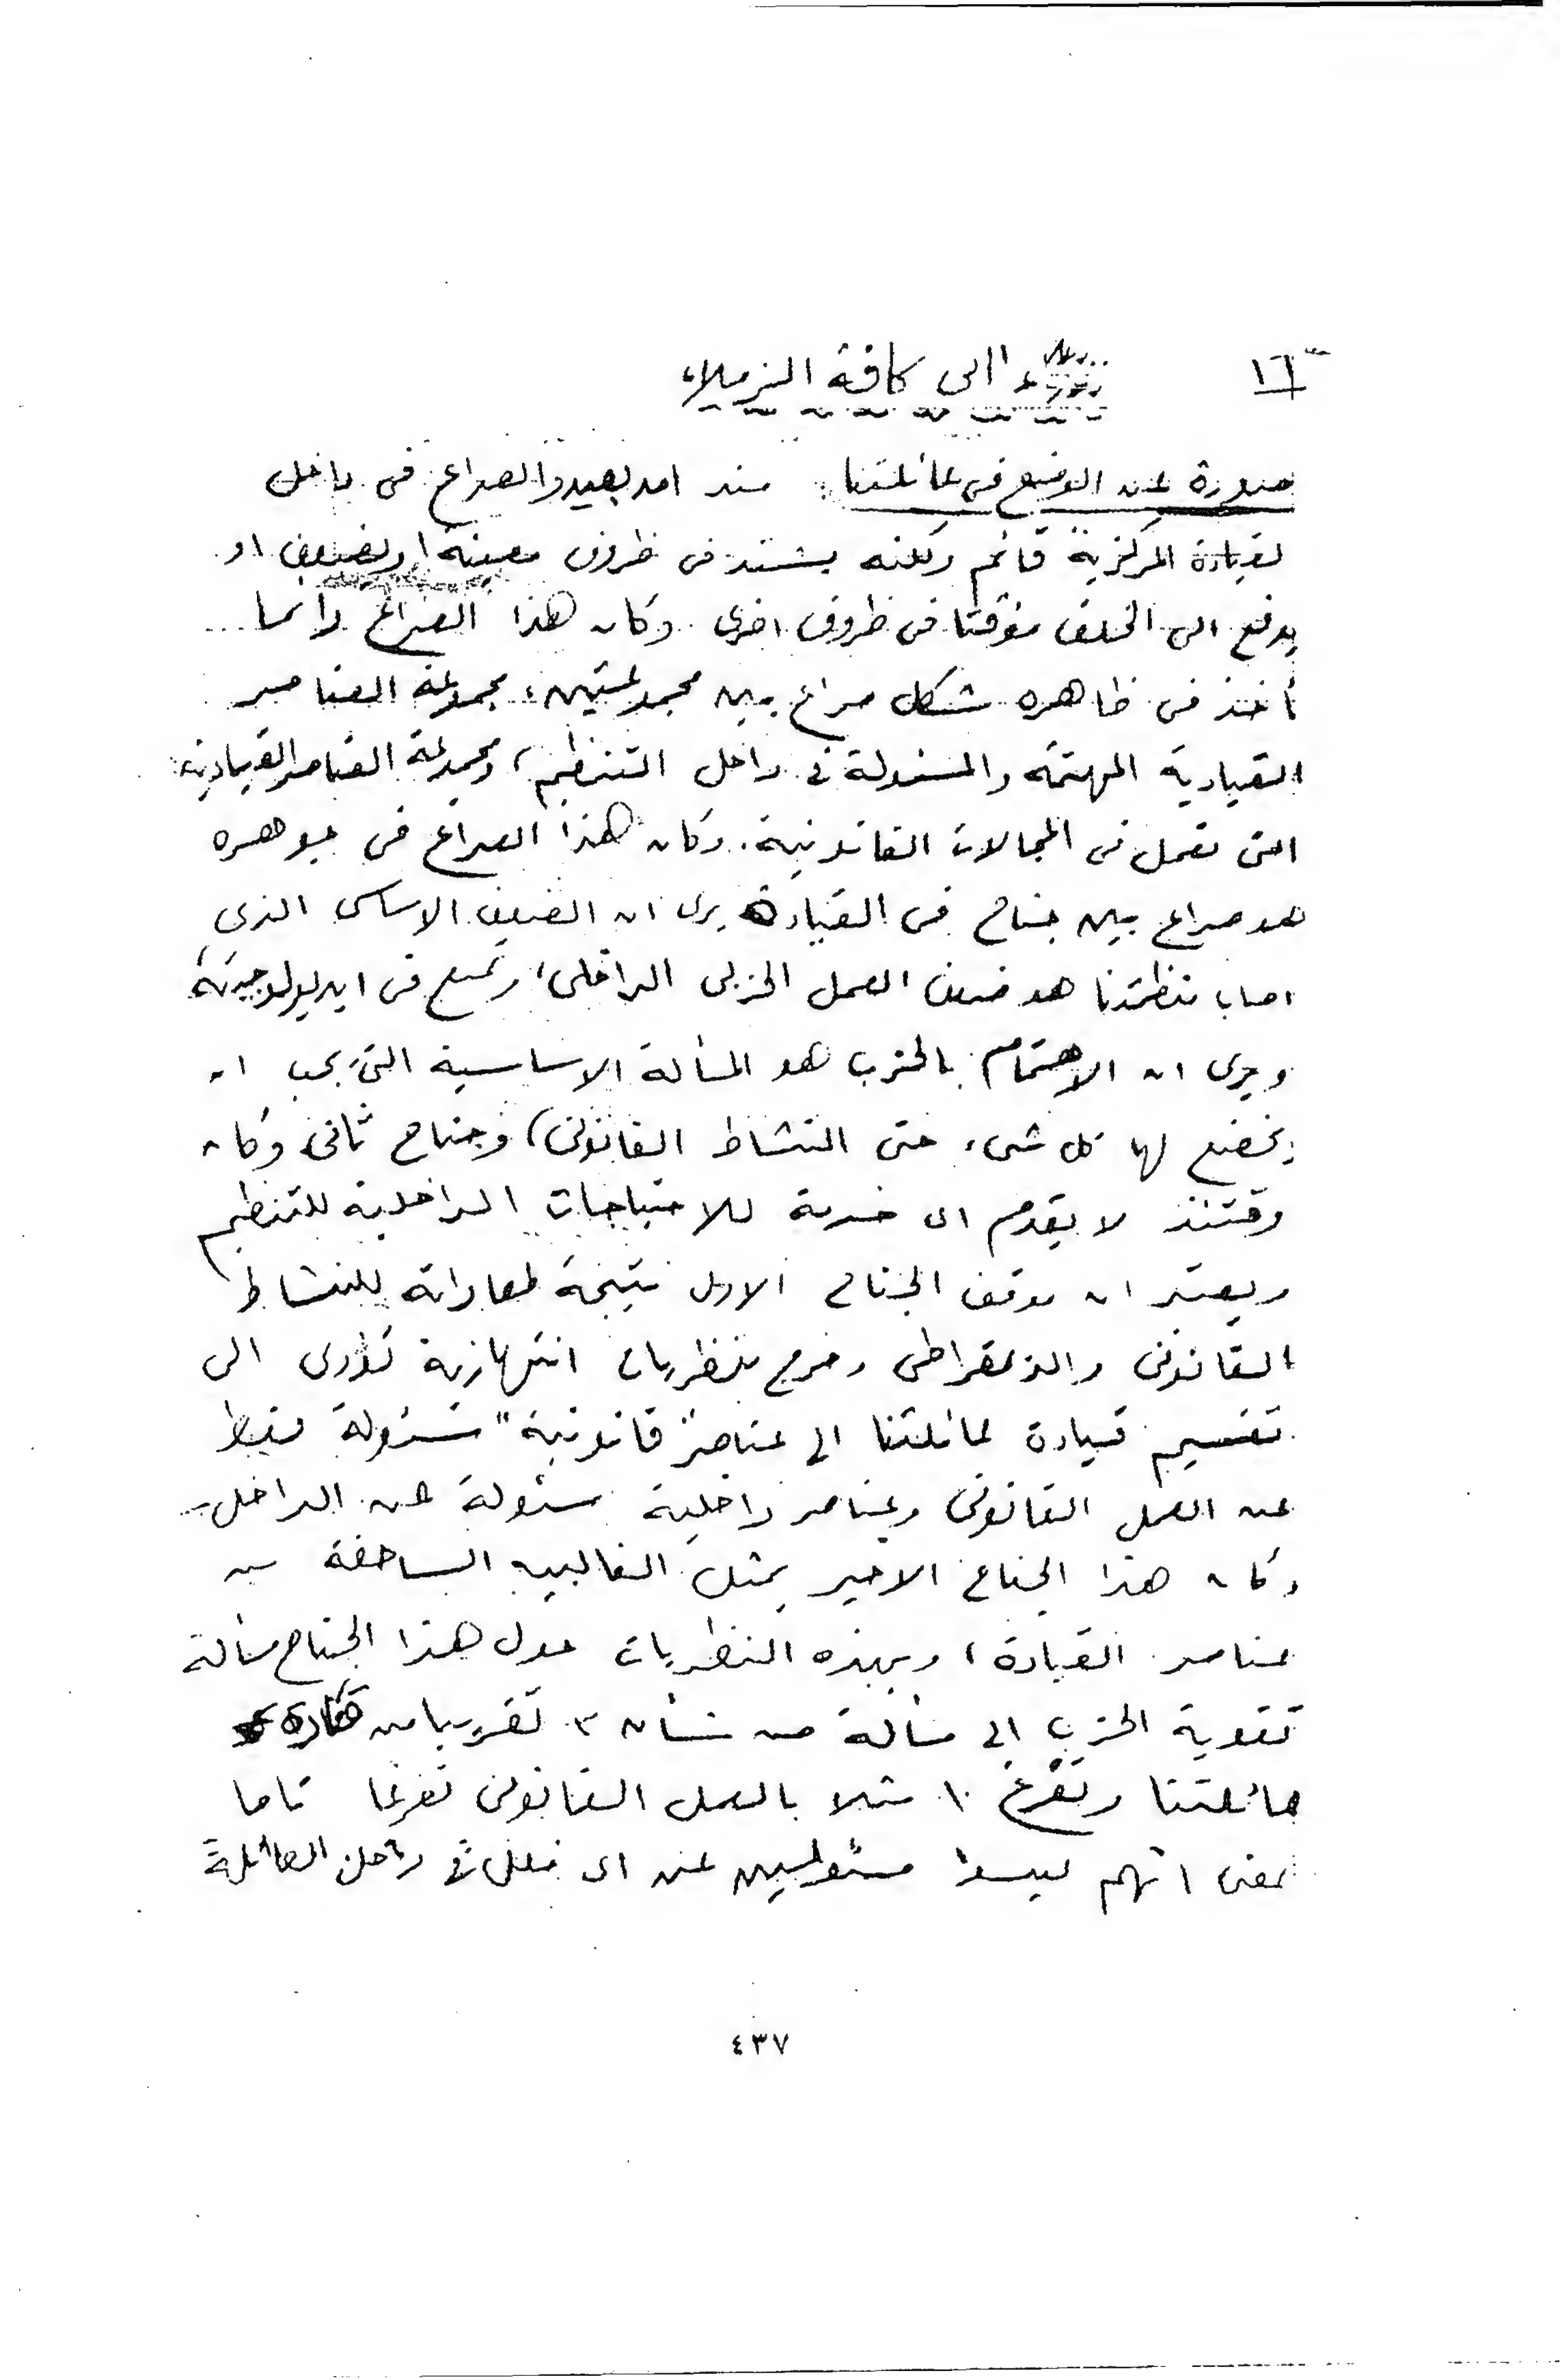 ١٦
الى كافة الزملاء
صورة عن الوضع فى عائلتنا: منذ امد بعيد والصراع فى داخل
لقيادة المركزية قائم ولكنه يشتد فى ظروف معينة او يضعف او
يدفع الى الخلف مؤقتا فى ظروف اخرى وكان هذا الصراع دائما
أخذ فى ظاهره شكل صراع بين مجموعتين، مجموعة العناصر
القيادية المهتمه والمسئولة فى داخل التنظيم، ومجموعة العناصر القيادية
التى تعمل فى المجالات القانونية. وكان هذا الصراع فى جوهره
هو صراع بين جناح فى القيادة يرى ان الضعف الاساسى الذى
اصاب منظمتنا هو ضعف العمل الحزبى الداخلى، وتميع فى ايديولوجيتة
ويرى ان الاهتمام بالحزب هو المسألة الاساسية التى يجب ان
يخضع لها كل شىء حتى النشاط القانونى) وجناح ثانى وكان
وقتئذ لا يقدم اى خدمة للاحتياجات الداخلية للتنظيم
ويعتبر ان موقف الجناح الاول نتيجة لمعاداته للنشاط
القانونى والديمقراطى وخرج بنظريات انتهازية تؤدى الى
تقسيم قيادة عائلتنا الى عناصر قانونية" مسئولة فقط
عن العمل القانونى وعناصر داخلية مسئولة عن الداخل
وكان هذا الجناح الاخير يمثل الغالبيه الساحقة من
عناصر القيادة، وبهذه النظريات حول هذا الجناح مسألة
تقوية الحزب الى مسألة من شأن ٣ تقريبا من قادة
عائلتنا وتفرغ ١٠ مثلا بالعمل القانونى تفرغا تاما
بمعنى انهم ليسوا مسئولين عن اى خلل فى داخل العائلة
٤٣٧